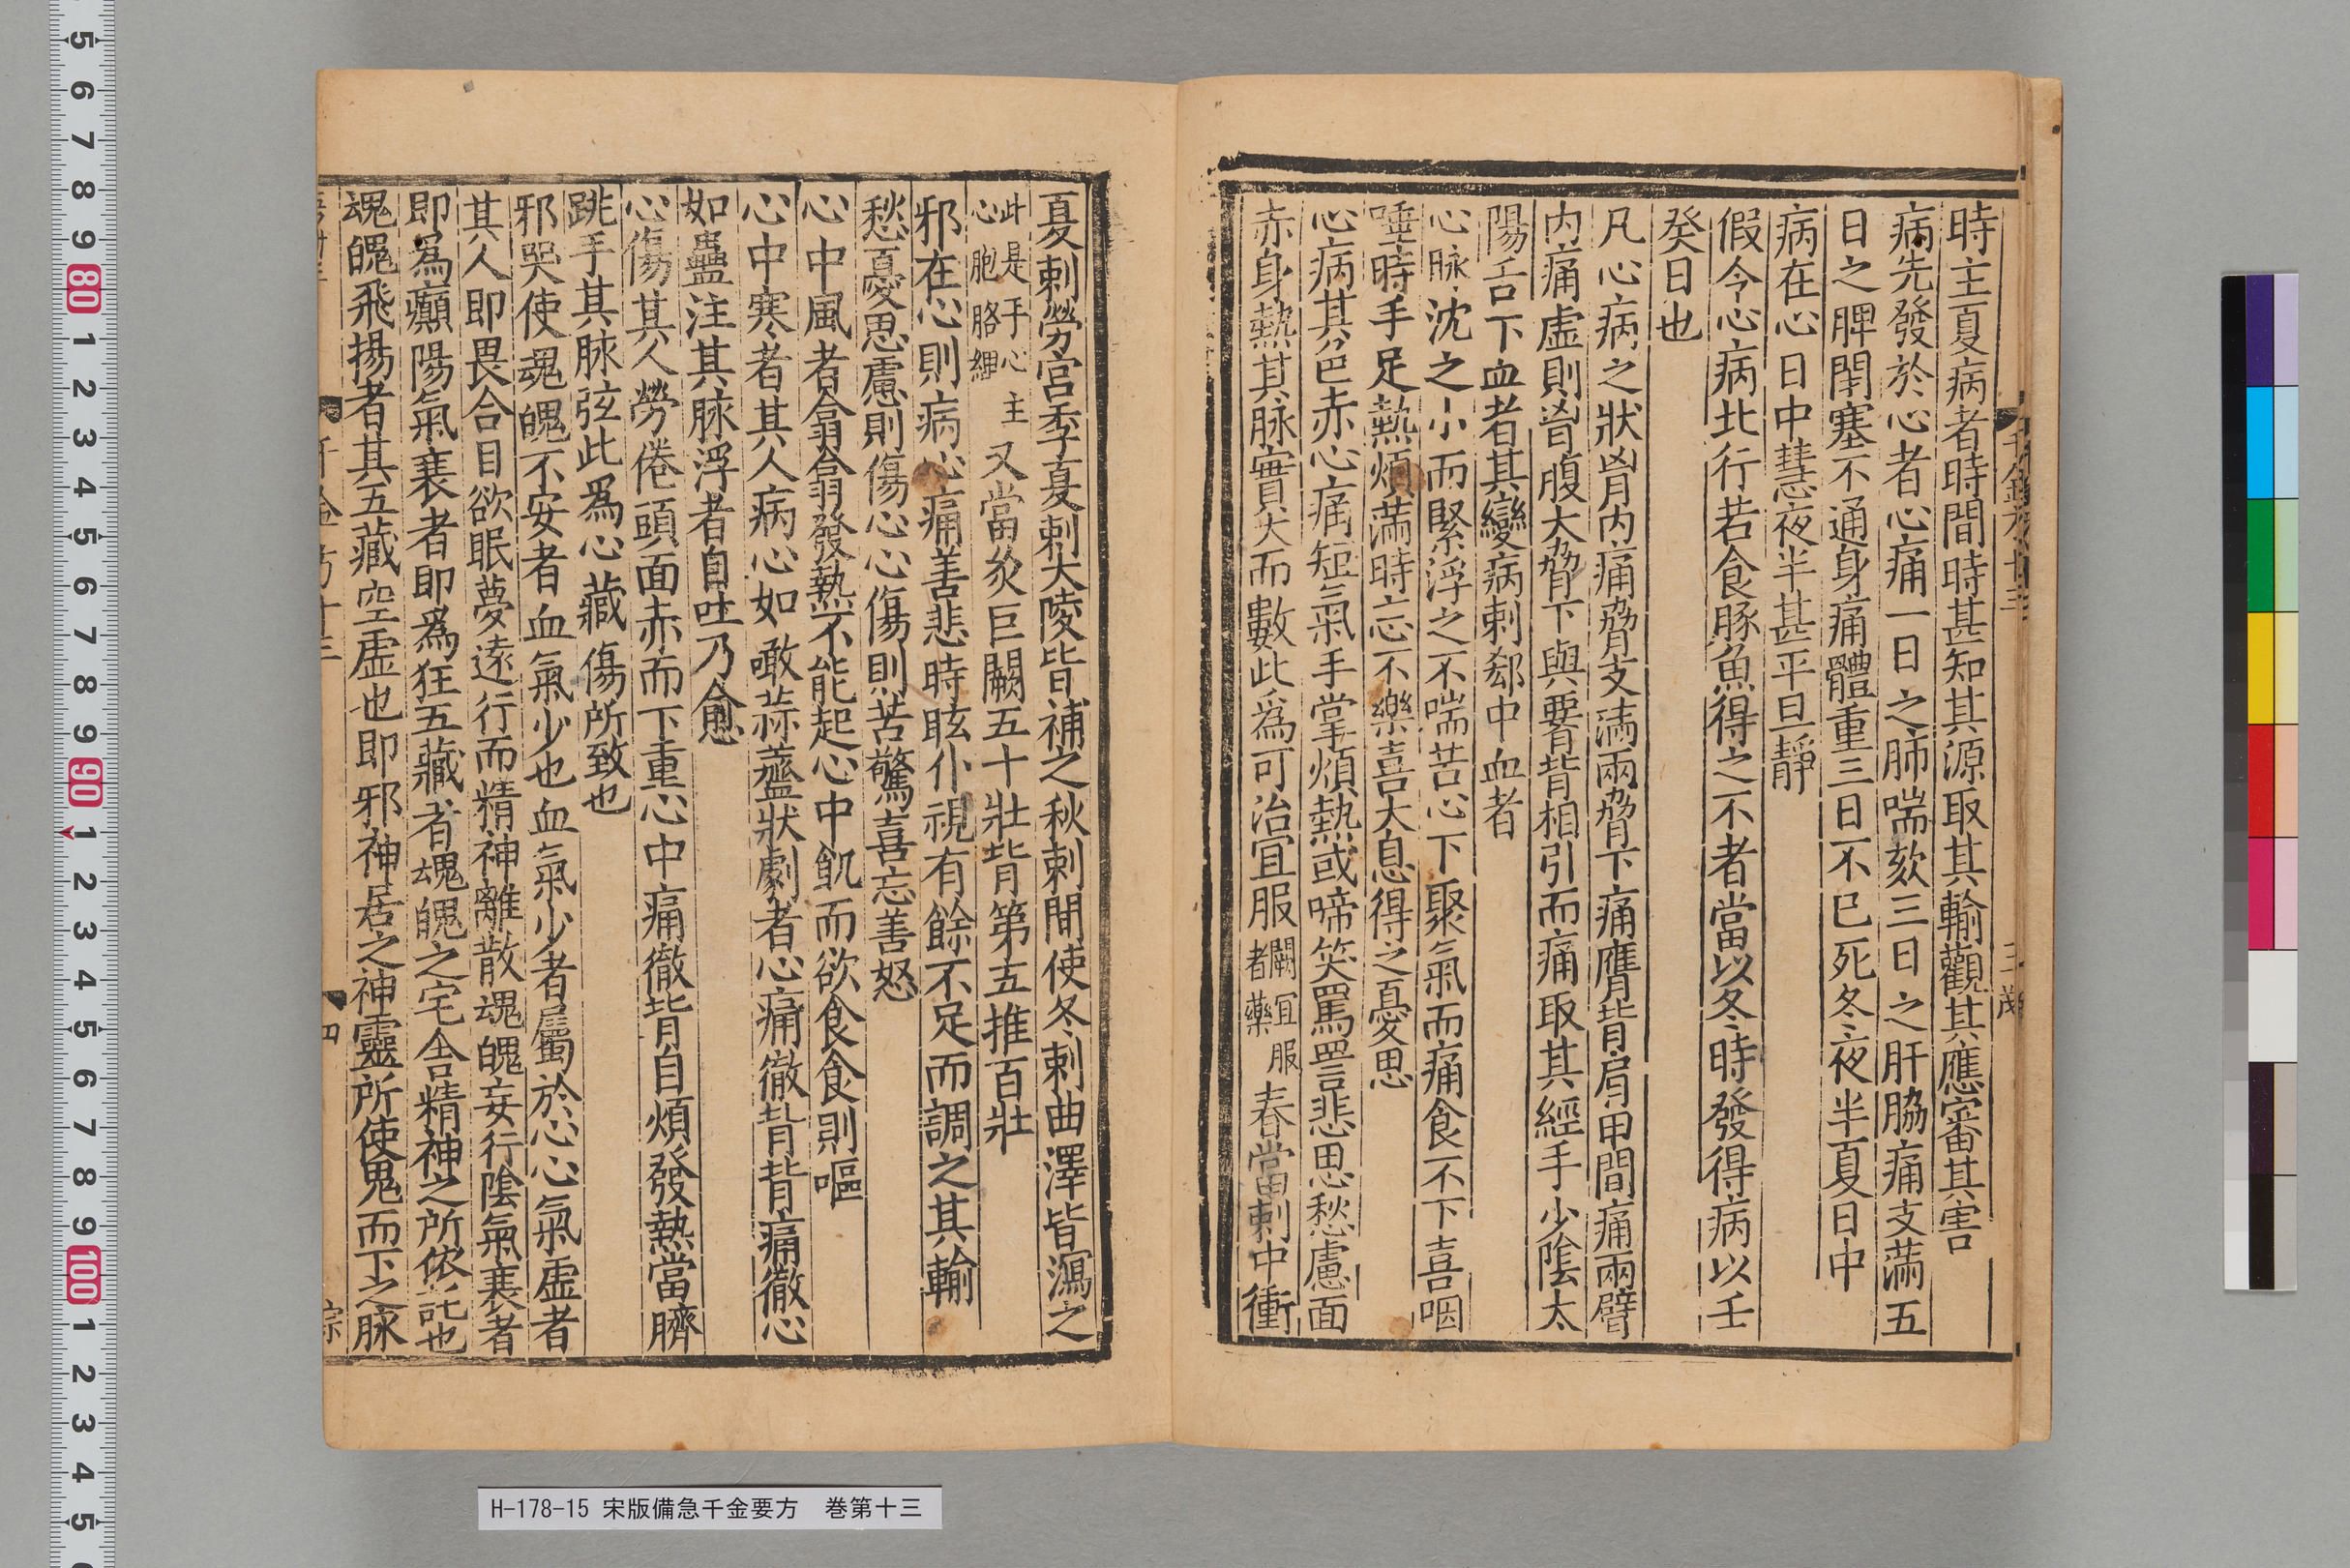 時主夏病者時間時甚知其源取其輸觀其應審其害
病先發於心者心痛一日之肺喘欬三日之肝脇痛支滿五
日之脾閉塞不通身痛體重三日不已死冬夜半夏日中
病在心日中慧夜半甚平旦靜
假令心病北行若食豚魚得之不者當以冬時發得病以壬
癸日也
凡心病之狀胷内痛脅支滿兩脅下痛膺背肩甲間痛兩臂
内痛虛則胷腹大脅下與要背相引而痛取其經手少陰太
陽舌下血者其變病刺郄中血者
心脉沈之小而緊浮之不喘苦心下聚氣而痛食不下喜咽
唾時手足熱煩滿時忘不樂喜大息得之憂思
心病其色赤心痛短氣手掌煩熱或啼笑罵詈悲思愁慮面
赤身熱其脉實大而數此爲可治宜服闕宜服者藥春當刺中衝
夏刺勞宮季夏刺大陵皆補之秋刺間使冬刺曲澤皆瀉之
此是手心主心胞胳經又當灸巨闕五十壯背第五推百壯
邪在心則病心痛善悲時眩仆視有餘不足而調之其輸
愁憂思慮則傷心心傷則苦驚喜忘善怒
心中風者翕翕發熱不能起心中飢而欲食食則嘔
心中寒者其人病心如噉蒜虀狀劇者心痛徹背背痛徹心
如蠱注其脉浮者自吐乃愈
心傷其人勞倦頭面赤而下重心中痛徹背自煩發熱當臍
跳手其脉弦此爲心藏傷所致也
邪哭使魂魄不安者血氣少也血氣少者屬於心心氣虛者
其人即畏合目欲眠夢遠行而精神離散魂魄妄行陰氣衰者
即爲癲陽氣衰者即爲狂五藏者魂魄之宅舍精神之所依託也
魂魄飛揚者其五藏空虛也即邪神居之神靈所使鬼而下之脉
千金方十三
四
H-178-15 宋版備急千金要方　巻第十三